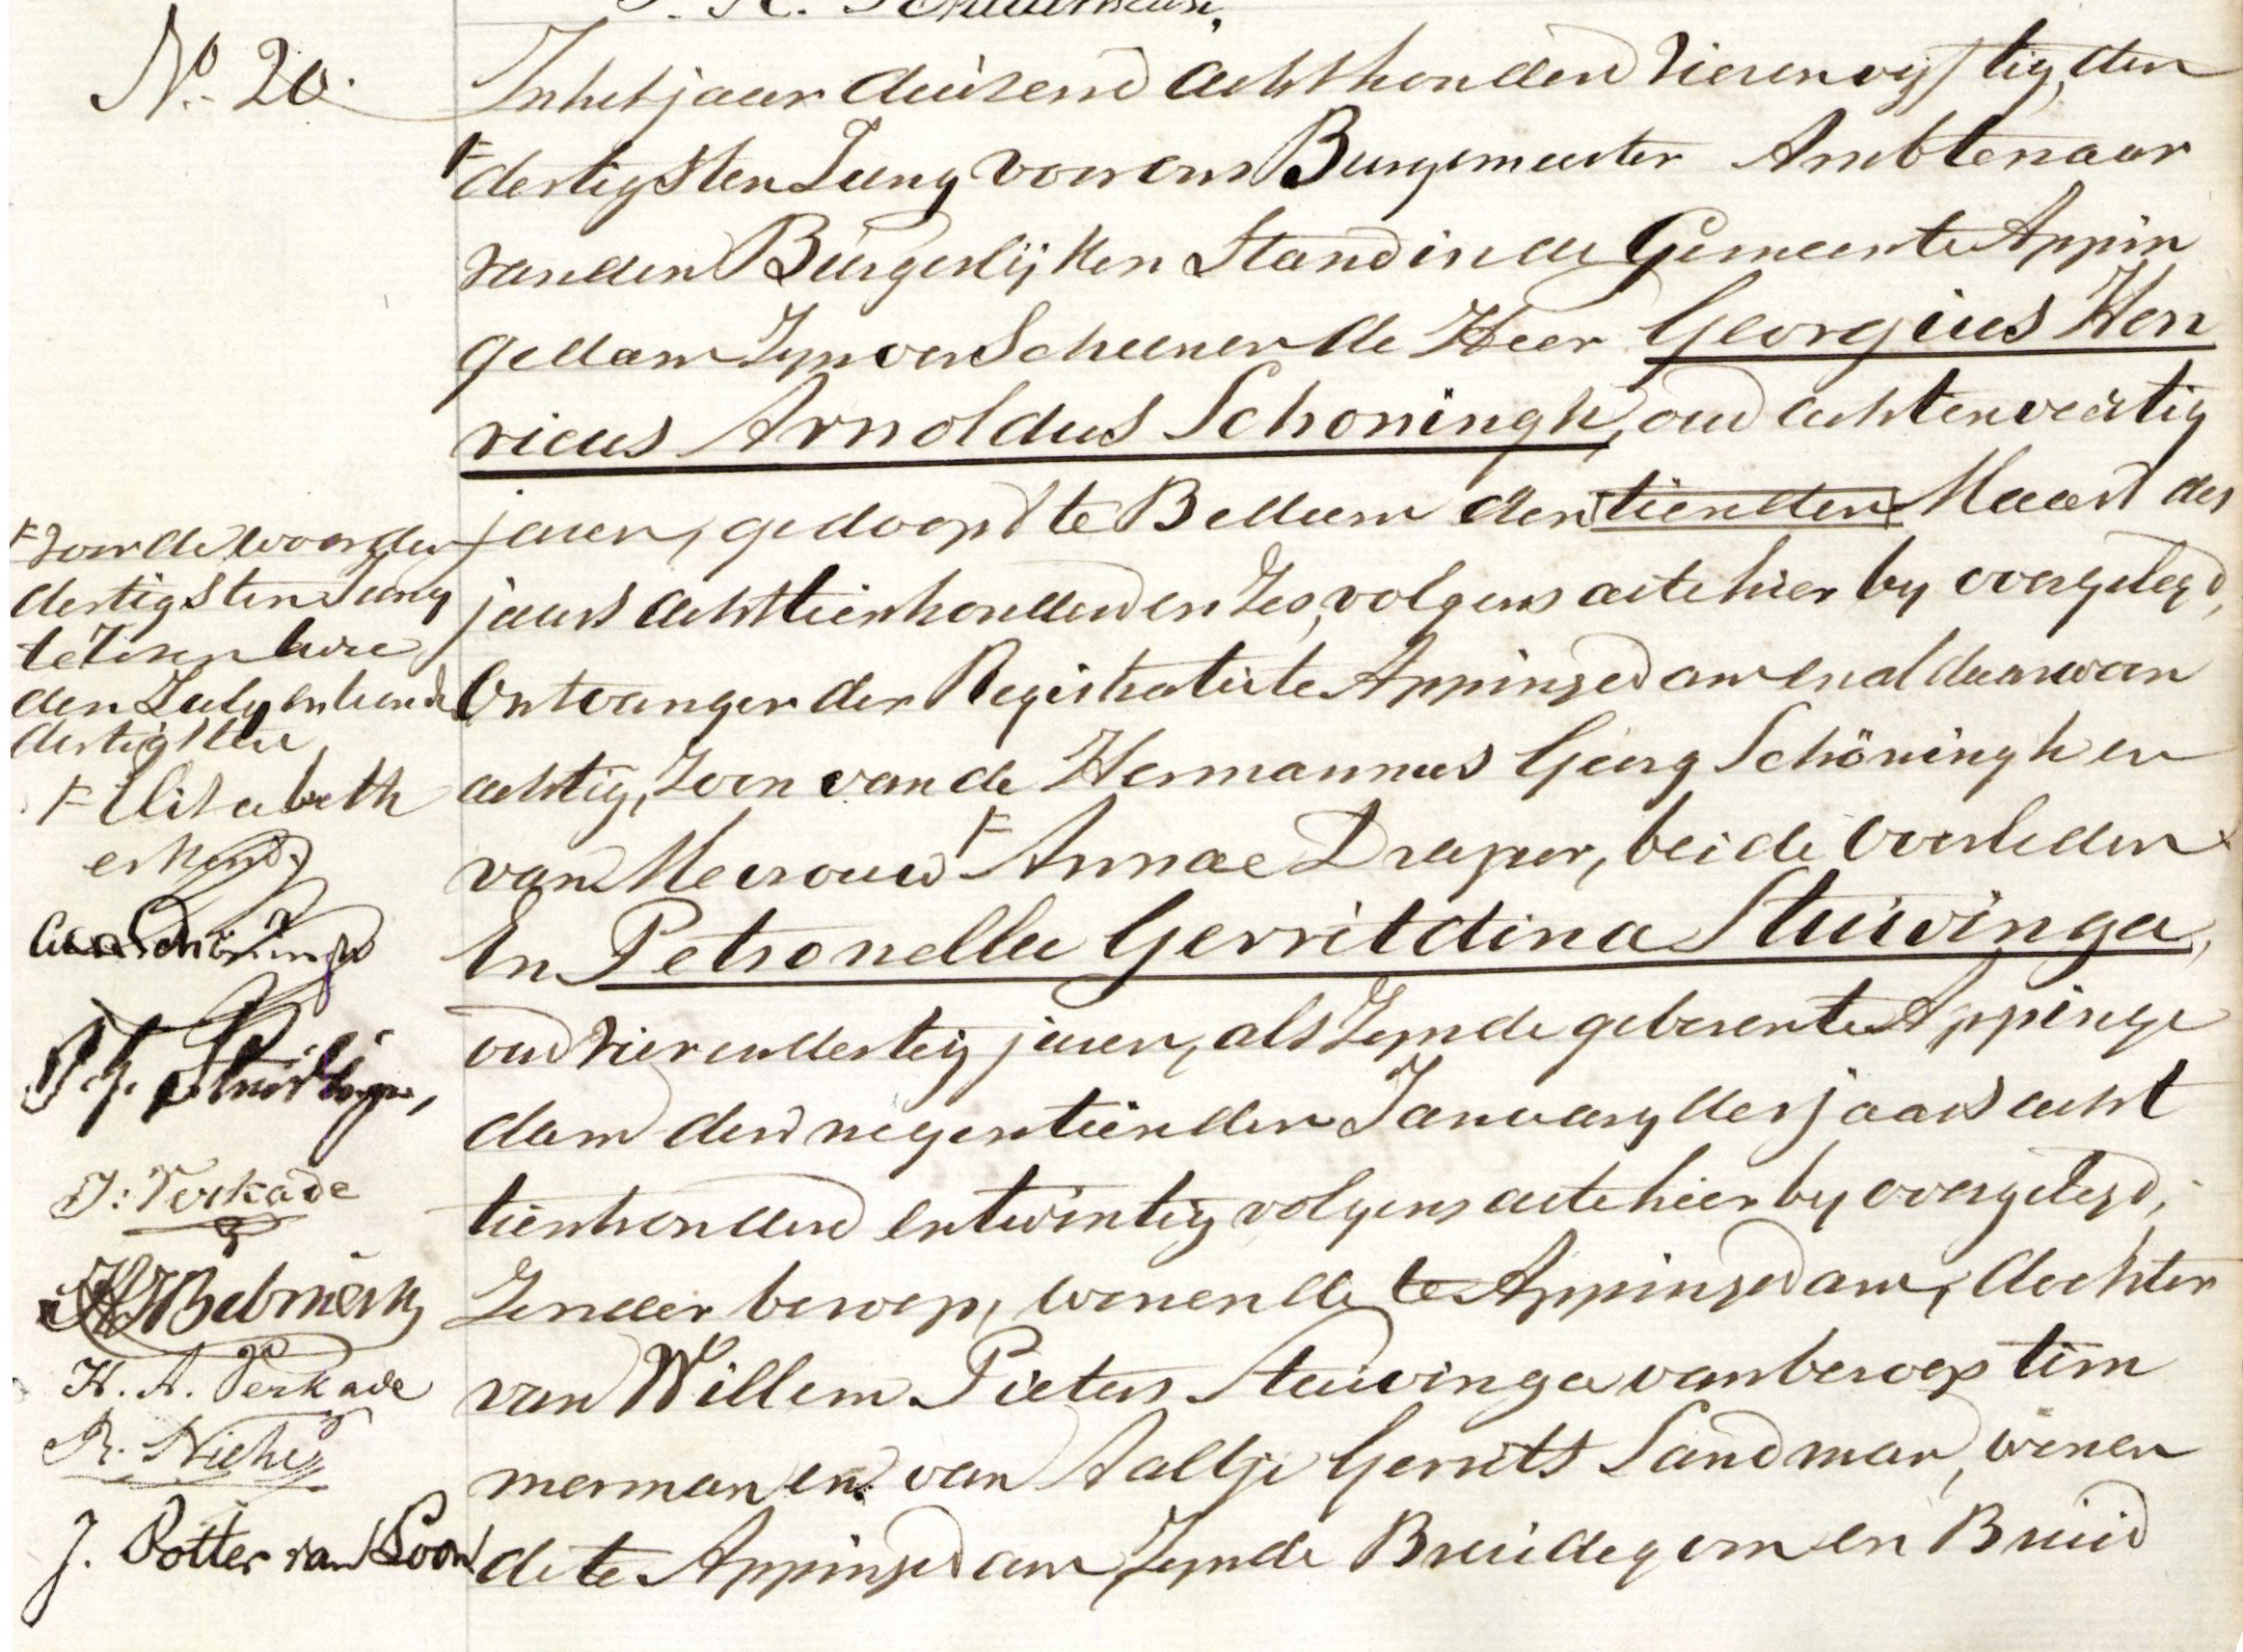 No. 20.
In het jaar duizend achthonderd vierenvyftig, den
dertigsten Juny voor ons Burgemeester Ambtenaar
van den Burgerlijken Stand in de Gemeente Appin
gedam Zyn verscheenen de Heer Georgius Hen
ricus Arnoldus Schoningh, oud achtenveertig
jaren, gedoopt te Bellum den tienden Maart des
jaars achttienhonderd en Zes, volgens acte hier by overgelegd,
Ontvanger der Registratie te Appingedam en aldaar woon
achtig, Zoon van de Hermannus Georg Schöningh en
van Mevrouw Annae Draper, beide overleden
En Petronella Gerritdina Stuivinga,
oud vierendertig jaren, als Zynde geboren te Appinge
dam den negentienden January des jaars acht
tienhonderd en twintig volgens acte hier by overgelegd,
Zonder beroep, wonende te Appingedam, dochter
van Willem Pieters Stuivinga van beroep tim
merman en van Aaltje Gerrits Landman, wonen
de te Appingedam, Zynde Bruidegom en Bruid
voor de woorden
dertigsten Juny
te lezen twee
den July en
dertigsten
Elisabeth
erkend
Schöningh
P. G. Stuivinga,
J: Verkade
H. A. Verkade
J. Potter van Loon